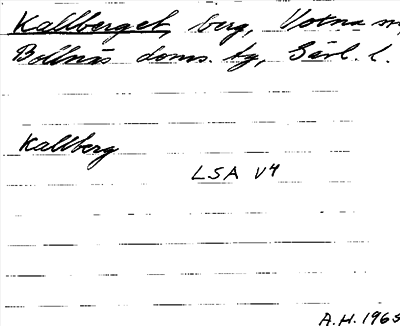 Kallberget, berg, Voxna sn,
Bollnäs doms. tg, Gävl. l.
Kallberg
LSA V4
A.H. 1965